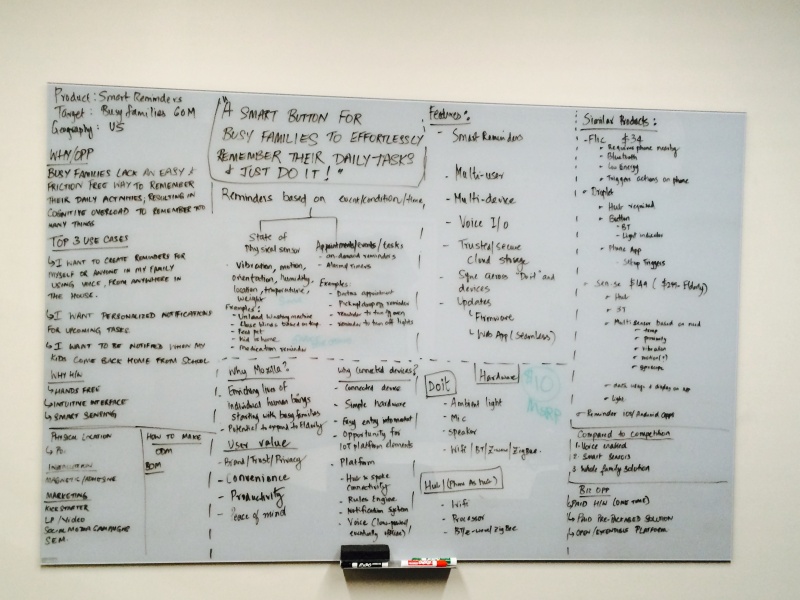 Product: Smart Reminders
Target: Busy families 60M
Geography: US
WHY/OPP
BUSY FAMILIES LACK AN EASY &
FRICTION FREE WAY TO REMEMBER
THEIR DAILY ACTIVITIES, RESULTING IN
COGNITIVE OVERLOAD TO REMEMBER TOO
MANY THINGS
TOP 3 USE CASES
I WANT TO CREATE REMINDERS FOR
MYSELF OR ANYONE IN MY FAMILY
USING VOICE, FROM ANYWHERE IN
THE HOUSE.
I WANT PERSONALIZED NOTIFICATIONS
FOR UPCOMING TASKS
I WANT TO BE NOTIFIED WHEN MY
KIDS COME BACK HOME FROM SCHOOL
WHY H/W
HANDS FREE
INTUITIVE INTERFACE
SMART SENSING
PHYSICAL LOCATION
INSTALLATION
MAGNETIC/ADHESIVE
MARKETING
KICKSTARTER
LP/Video
SOCIAL MEDIA CAMPAIGNS
SEM
HOW TO MAKE
ODM
BOM
"A SMART BUTTON FOR
BUSY FAMILIES TO EFFORTLESSLY
REMEMBER THEIR DAILY TASKS
& JUST DO IT!"
Reminders based on event/condition/time
State of
Physical sensor
- Vibration, motion,
orientation, humidity,
location, temperature,
weight
Examples:
- Unload washing machine
- Feed pet
- Kid is home
- Medication reminder
Appointments/events/tasks
- on-demand reminders
- Alarms/timers
Examples:
- Doctors appointment
- Pickup/dropoff reminder
- reminder to turn off oven
- reminder to turn off lights
Why Mozilla?
- Enriching lives of
Individual human beings
starting with busy families
- Potential to expand to Elderly
User value
- Brand/Trust/Privacy
- Convenience
- Productivity
- Peace of mind
Why Connected devices?
- Connected device
- Simple hardware
- Easy entry into market
- Opportunity for
IoT platform elements
- Platform
- Hub & spoke
connectivity
- Rules Engine
- Notification system
- Voice (low-power,
eventually offline)
Features:
- Smart Reminders
- Multi-user
- Multi-device
- Voice I/O
- Trusted/secure
Cloud storage
- Sync across "DoIt" and
devices
- Updates
Firmware
Web App (Seamless)
DoIt
Hardware
- Ambient light
- Mic
- speaker
- Wifi/BT/Z-wave/ZigBee
Hub/(Phone As hub)
- Wifi
- Processor
- BT/z-wave/zigBee
Similar Products:
- Flic $34
Requires phone nearby
Bluetooth
Low Energy
Triggers actions on phone
- Droplet
Hub required
Button
- BT
- Light indicator
Phone App
- Setup Triggers
- Sen.se $199 ($299 Elderly)
Hub
Multi sensor based on need
- temp
- proximity
- vibration
- gyroscope
Light
- Reminder iOS/Android apps
Compared to competition
1 Voice enabled
2 Smart sensors
3 Whole family solution
Biz OPP
PAID H/W (ONE TIME)
PAID PRE-PACKAGED SOLUTION
OPEN/EXTENSIBLE PLATFORM
EXPO